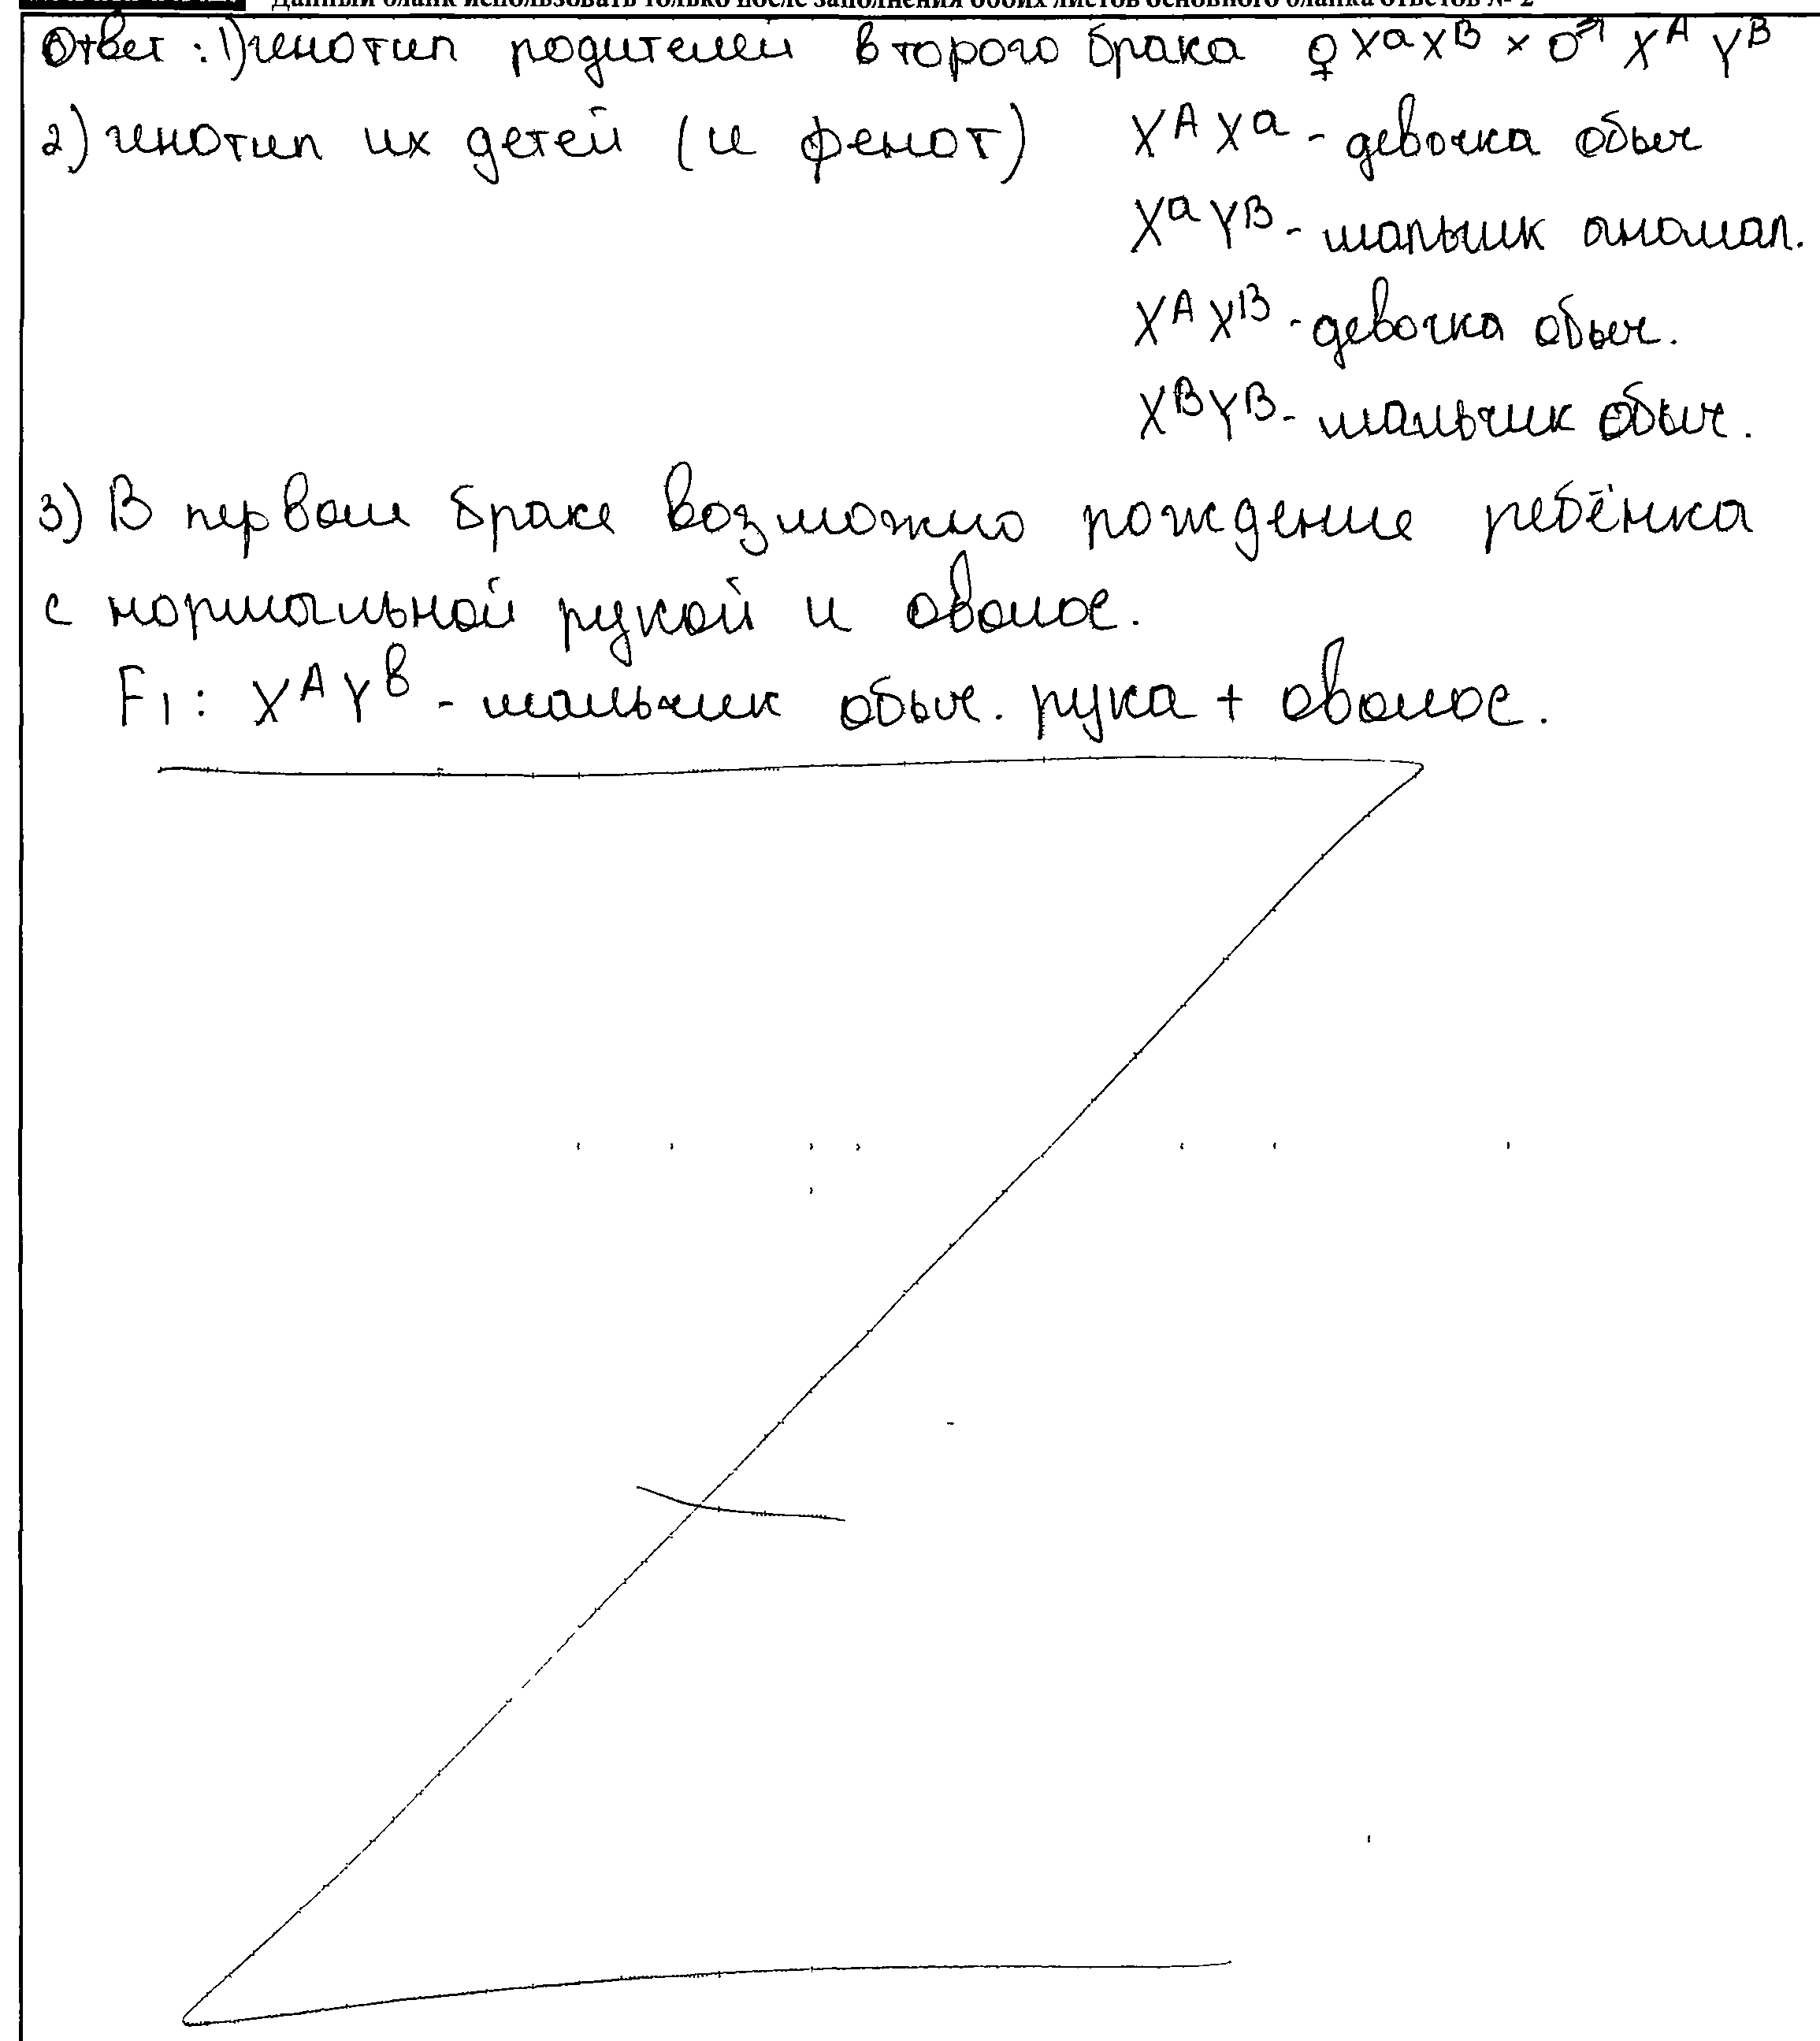 Данный бланк использовать только после заполнения обоих листов основного бланка ответов № 2
Ответ: 1) генотип родителей второго брака ♀ XᵃXᴮ × ♂ XᴬYᴮ
2) генотип их детей (и фенот) XᴬXᵃ - девочка обыч
XᵃYᴮ - мальчик аномал.
XᴬXᴮ - девочка обыч.
XᴮYᴮ - мальчик обыч.
3) В первом браке возможно рождение ребёнка
с нормальной рукой и оволос.
F1: XᴬYᵇ - мальчик обыч. рука + оволос.